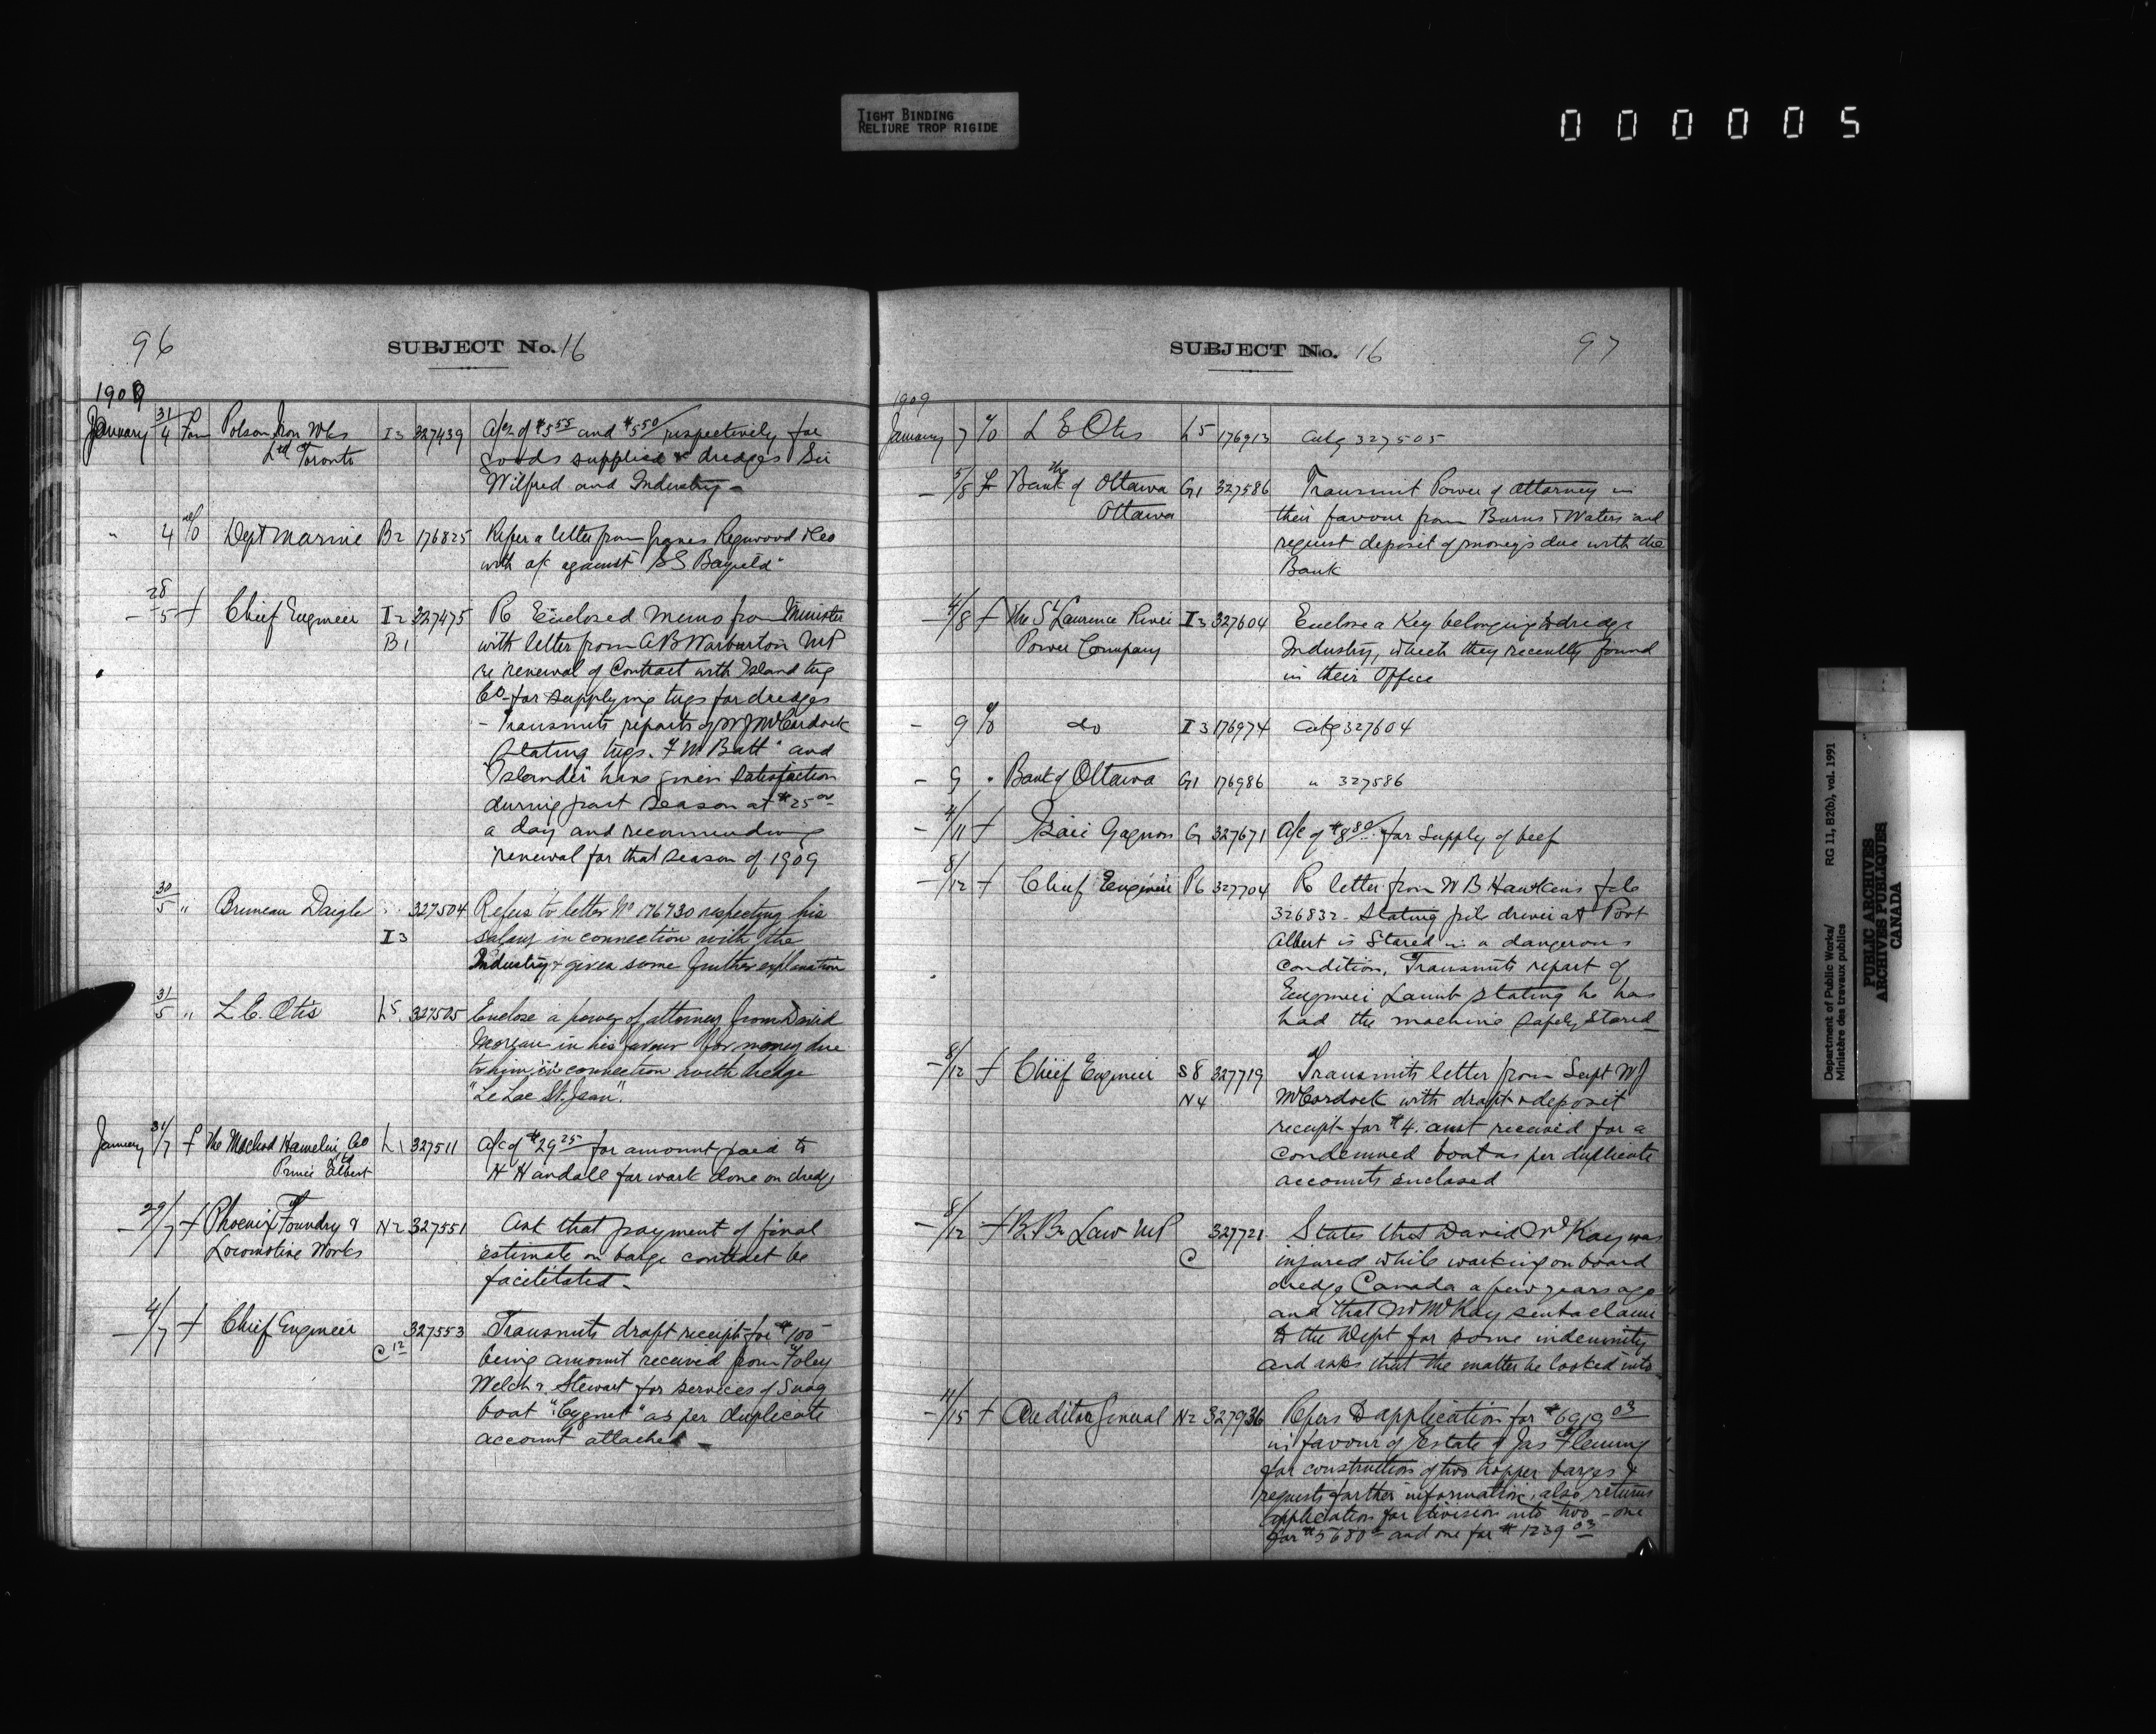 TIGHT BINDING
RELIURE TROP RIGIDE
000005
96
SUBJECT No. 16
1909
January 31/4 Fm Polson Iron Wks I3 327439 A/cs of $5.55 and $5.50 respectively for
Ltd Toronto goods supplied to dredges Sir
Wilfred and Industry -
" 4 O Dept Marine B2 176825 Refer a letter from Regwood &Co
with a/c against "SS Bayfield"
- 28/5 f Chief Engineer I2 327475 Re Enclosed Memo from Minister
B1 with letter from A B Warburton MP
re renewal of Contract with Island tug
Co- for supplying tugs for dredges
- Transmits reports of W J McCordock
stating tugs "F W Batt" and
"Islander" have given satisfaction
during past season at $25 00
a day and recommending
renewal for that season of 1909
30/5 " Bruneau Daigle 327504 Refers to letter No 176730 respecting his
I3 salary in connection with the
Industry & gives some further explanation
31/5 " L. E. Otis L5. 327505 Enclose a power of attorney from David
Morgan in his favour for money due
to him in connection with dredge
"Le Lac St. Jean".
January 31/7 f The Macleod Hamelin Co L1 327511 A/c of $29 25 for amount paid to
Ltd Prince Albert H Handall for work done on dredge
- 29/7 f Phoenix Foundry & N2 327551 Ask that payment of final
Locomotive Works estimate on barge contract be
facilitated -
- 4/7 f Chief Engineer 327553 Transmits draft receipt for $100
C12 being amount received from Foley
Welch & Stewart for services of Snag
boat "Cygnet" as per duplicate
account attached -
SUBJECT No. 16 97
1909
January 7 O L E Otis L5 176913 Ackg 327505
- 5/8 f The Bank of Ottawa G1 327586 Transmit Power of attorney in
Ottawa their favour from Burns & Waters and
request deposit of money's due with the
Bank
- 4/8 f The St Laurence River I3 327604 Enclose a Key belonging to dredge
Power Company Industry, which they recently found
in their Office
- 9 O do I3 176974 Ackg 327604
- 9 " Bank of Ottawa G1 176986 " 327586
- 4/11 f Gagnon G 327671 A/c of $8 80 for supply of beef
- 8/12 f Chief Engineer P6 327704 Re letter from W B Hawkins file
326832 - Stating pile driver at Port
Albert is Stored in a dangerous
condition, Transmits report of
Engineer Lamb stating he has
had the machine safely stored
- 8/12 f Chief Engineer S8 327719 Transmits letter from Supt W J
N4 McCordock with draft & deposit
receipt for $4. amt received for a
condemned boat as per duplicate
accounts enclosed
- 8/12 f B. B. Law MP 327721 States that David McKay was
C injured while working on board
dredge Canada a few years ago
and that Mr McKay sent a claim
to the Dept for some indemnity
and asks that the matter be looked into -
- 11/15 f Auditor General N2 327936 Refers to application for $6919 03
in favour of Estate of Jas Fleming
for construction of two hopper barges &
requests further information, also returns
application for division into two - one
for $5680 - and one for $1239 03
Department of Public Works/ RG 11, B2(b), vol. 1991
Ministère des travaux publics
PUBLIC ARCHIVES
ARCHIVES PUBLIQUES
CANADA